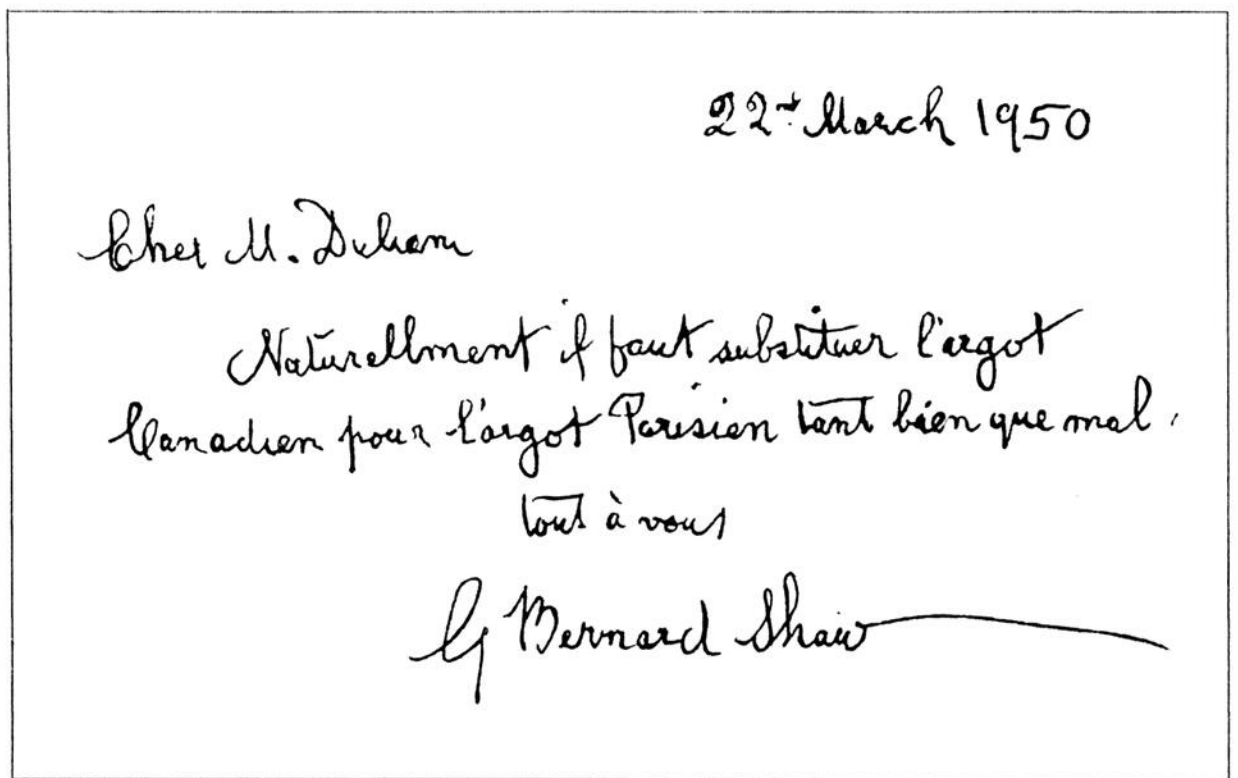 22nd March 1950
Cher M. Duham
Naturellment il faut substituer l'argot
Canadien pour l'argot Parisien tant bien que mal.
tout à vous
G Bernard Shaw